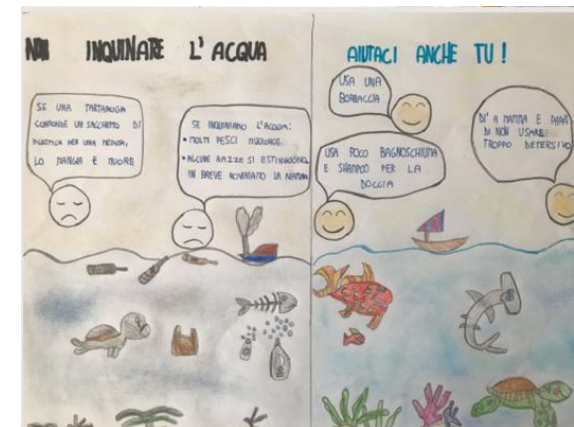 NON INQUINARE L'ACQUA
SE UNA TARTARUGA
CONFONDE UN SACCHETTO DI
PLASTICA PER UNA MEDUSA,
LO MANGIA E MUORE
SE INQUINIAMO L'ACQUA:
• MOLTI PESCI MUOIONO.
• ALCUNE RAZZE SI ESTINGUONO,
IN BREVE ROVINIAMO LA NATURA
AIUTACI ANCHE TU!
USA UNA
BORRACCIA
USA POCO BAGNOSCHIUMA
E SHAMPOO PER LA
DOCCIA
DI' A MAMMA E PAPÀ
DI NON USARE
TROPPO DETERSIVO